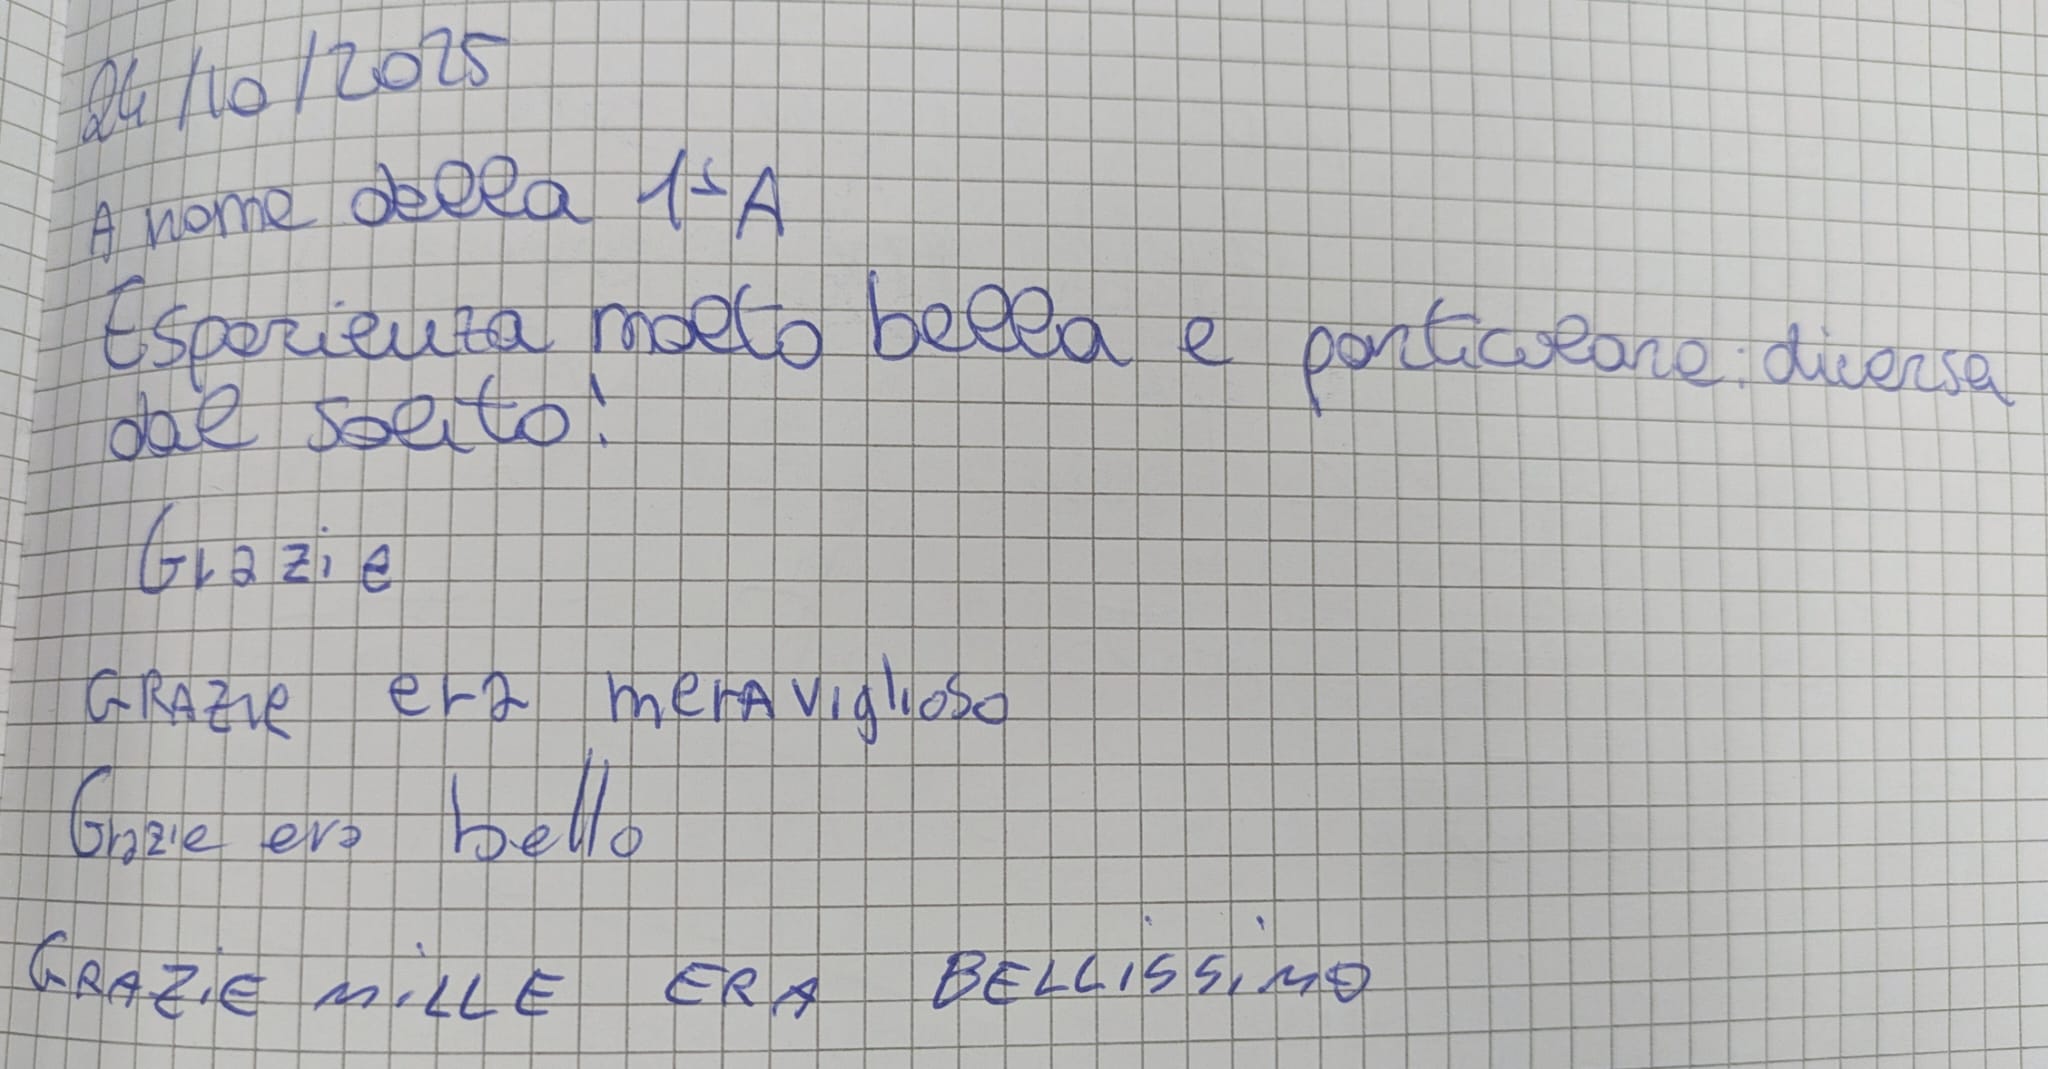 24/10/2025
A nome della 1ªA
Esperienza molto bella e particolare: diversa
dal solito!
Grazie
GRAZIE era meraviglioso
Grazie era bello
GRAZIE MILLE ERA BELLISSIMO